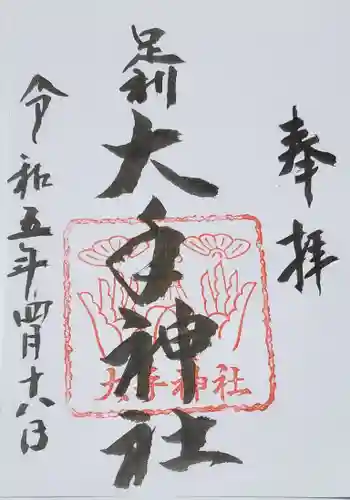 奉拝
足利
大手神社
令和五年四月十八日
大手神社